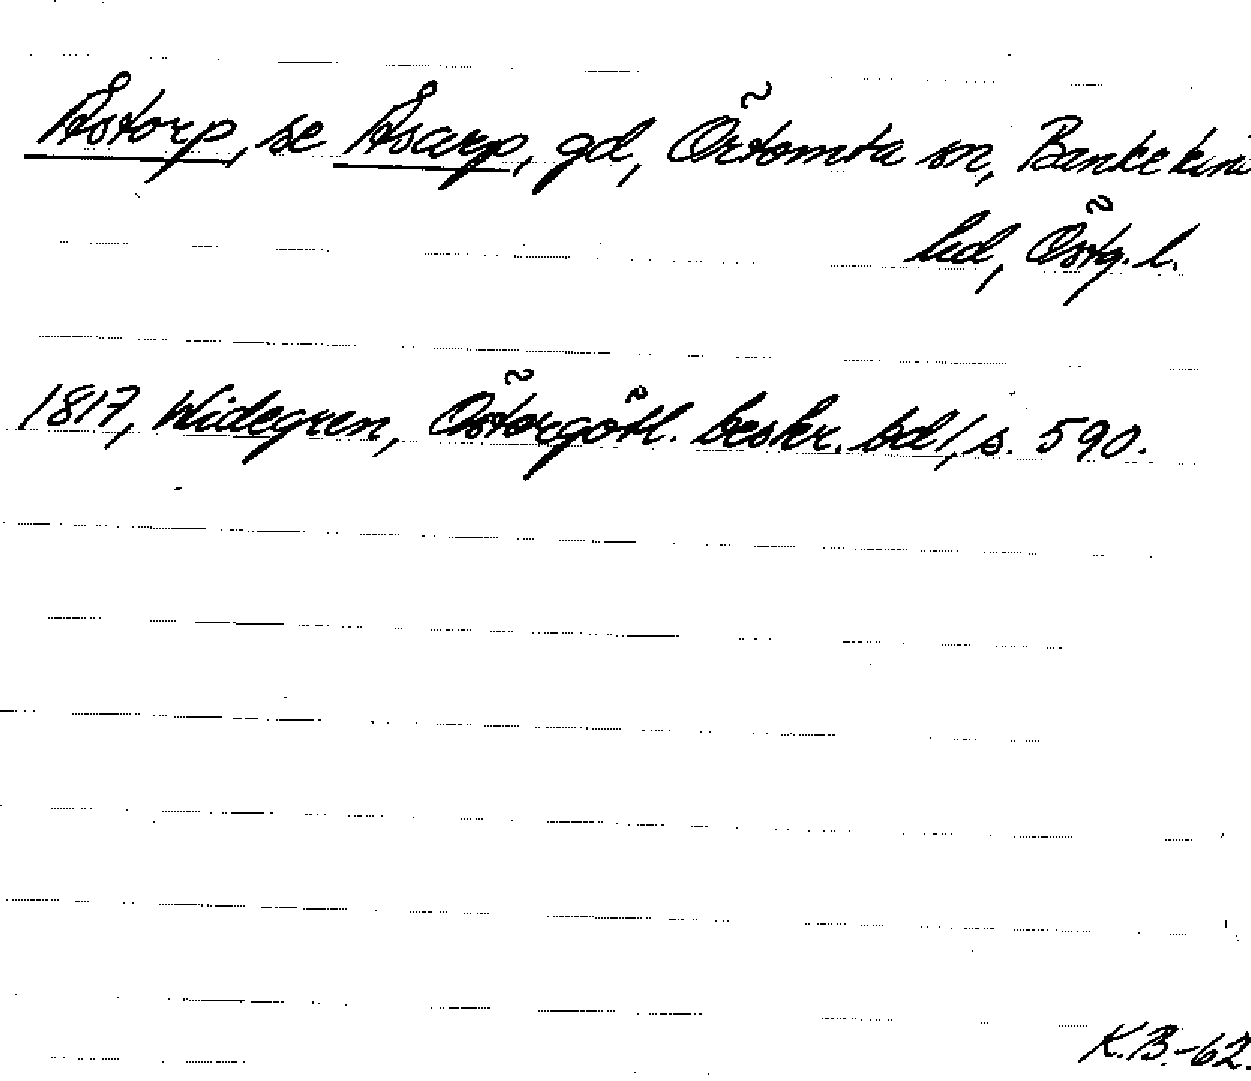 Åstorp, se Åsarp, gd, Örtomta sn, Bankekinds
hd, Östg. l.
1817, Widegren, Östergötl. beskr. bd 1, s. 590.
K.B.-62.